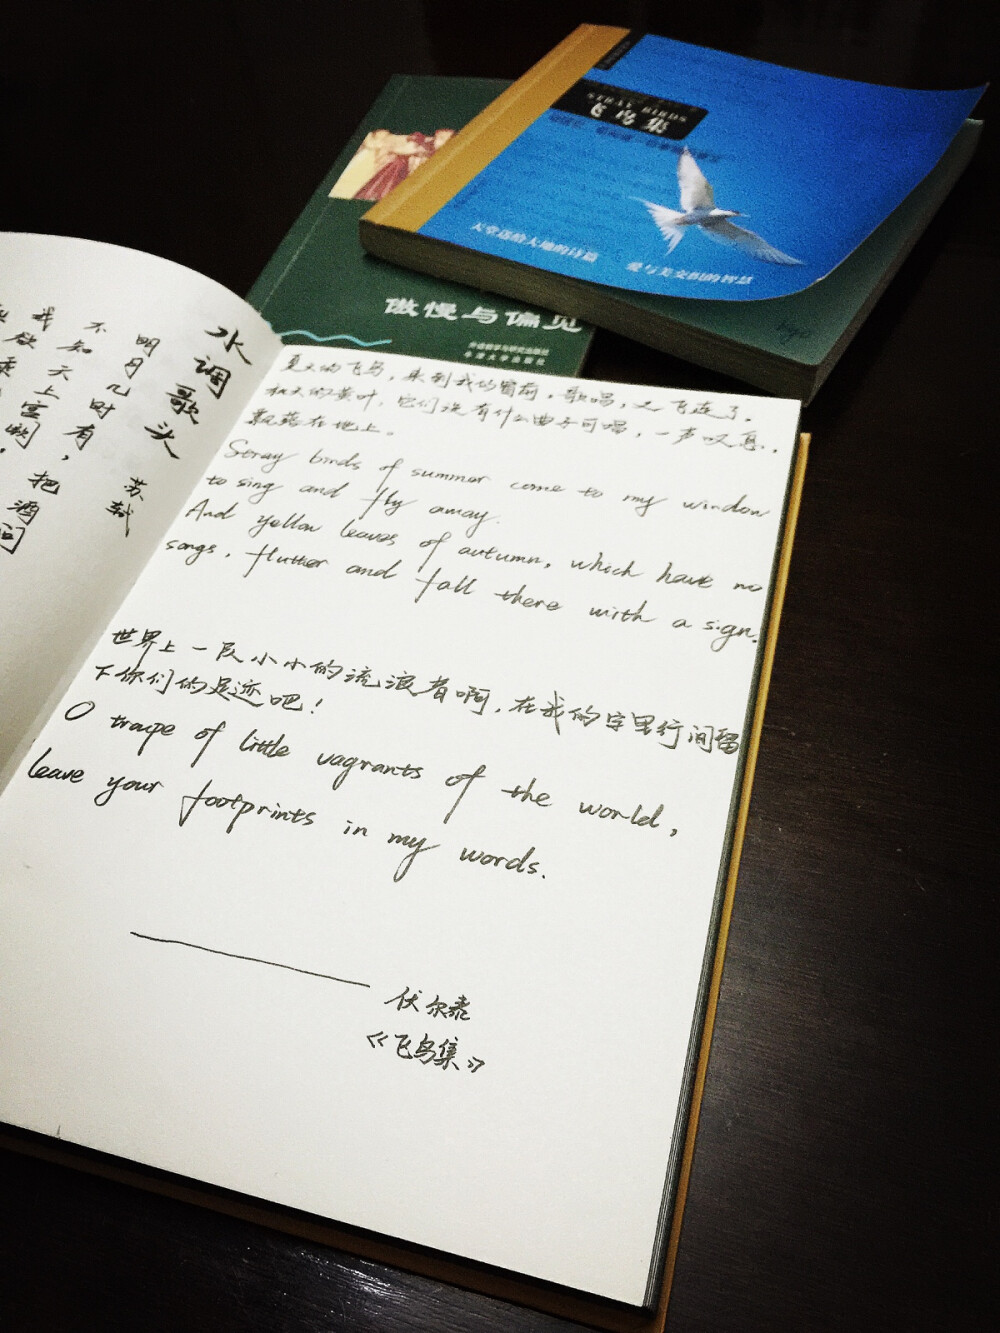 STRAY BIRDS
飞鸟集
天堂送给大地的诗篇 爱与美交织的智慧
傲慢与偏见
外语教学与研究出版社
水调歌头
苏轼
明月几时有，把酒问
不知天上宫阙，
我欲乘
夏天的飞鸟，来到我的窗前，歌唱，又飞走了。
秋天的黄叶，它们没有什么曲子可唱，一声叹息，
飘落在地上。
Stray birds of summer come to my window
to sing and fly away.
And yellow leaves of autumn, which have no
songs, flutter and fall there with a sign.
世界上一队小小的流浪者啊，在我的字里行间留
下你们的足迹吧！
O troupe of little vagrants of the world,
leave your footprints in my words.
伏尔泰
《飞鸟集》